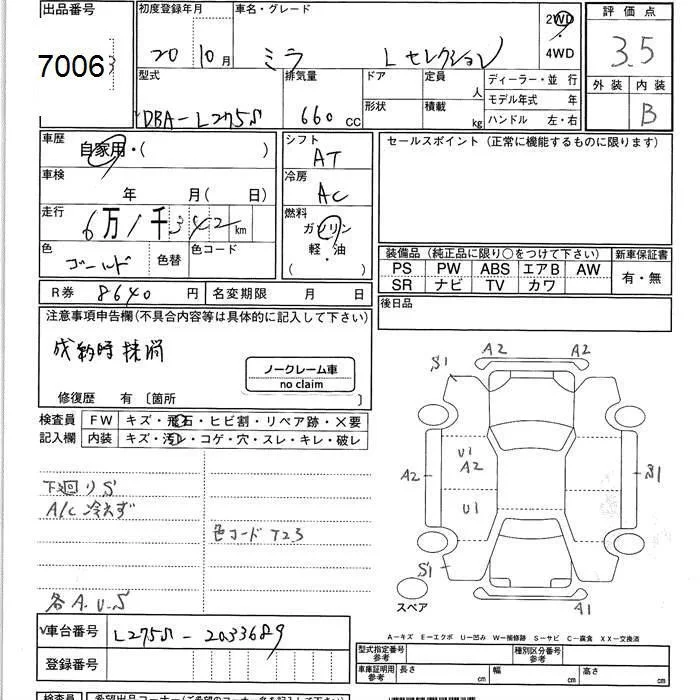 出品番号
7006
初度登録年月
20 10月
車名・グレード
ミラ Lセレクション
2WD
・
4WD
評価点
3.5
外装 内装
B
型式
DBA-L275S
排気量
660 cc
ドア
形状
定員
人
積載
kg
ディーラー・並 行
モデル年式 年
ハンドル 左・右
車歴
自家用・( )
車検
年 月(日)
走行
6万1千342km
色
ゴールド
色替
色コード
シフト
AT
冷房
AC
燃料
ガソリン
軽・油
( )
セールスポイント(正常に機能するものに限ります)
装備品(純正品に限り○をつけて下さい)
PS PW ABS エアB AW
SR ナビ TV カワ
新車保証書
有・無
後日品
R券 8640円
名変期限 月 日
注意事項申告欄(不具合内容等は具体的に記入して下さい)
ノークレーム車
no claim
修復歴 有〔箇所 〕
検査員
記入欄
FW キズ・飛石・ヒビ割・リペア跡・×要
内装 キズ・汚レ・コゲ・穴・スレ・キレ・破レ
下廻りS
A/C冷えず
色コード T23
各A.U.S
S1
A2
A2
U1
A2
A2
U1
S1
S1
A1
スペア
V車台番号 L275S-2033689
登録番号
A-キズ E-エクボ U-凹み W-補修跡 S-サビ C-腐食 XX-交換済
型式指定番号
参考
種別区分番号
参考
車庫証明用
参考
長さ cm
幅 cm
高さ cm
検査員
希望出品コーナー(ご希望のコーナー名を記入して下さい)